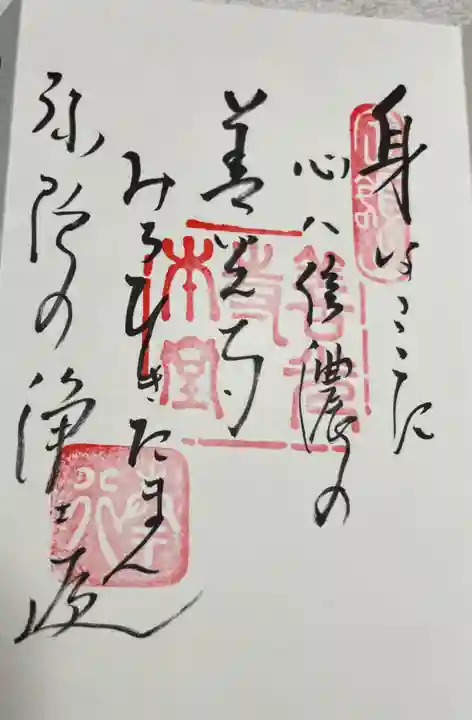 身はここに
心ハ信濃の
善光寺
みちびきたまへ
弥陀の浄土
善光
寺
本堂